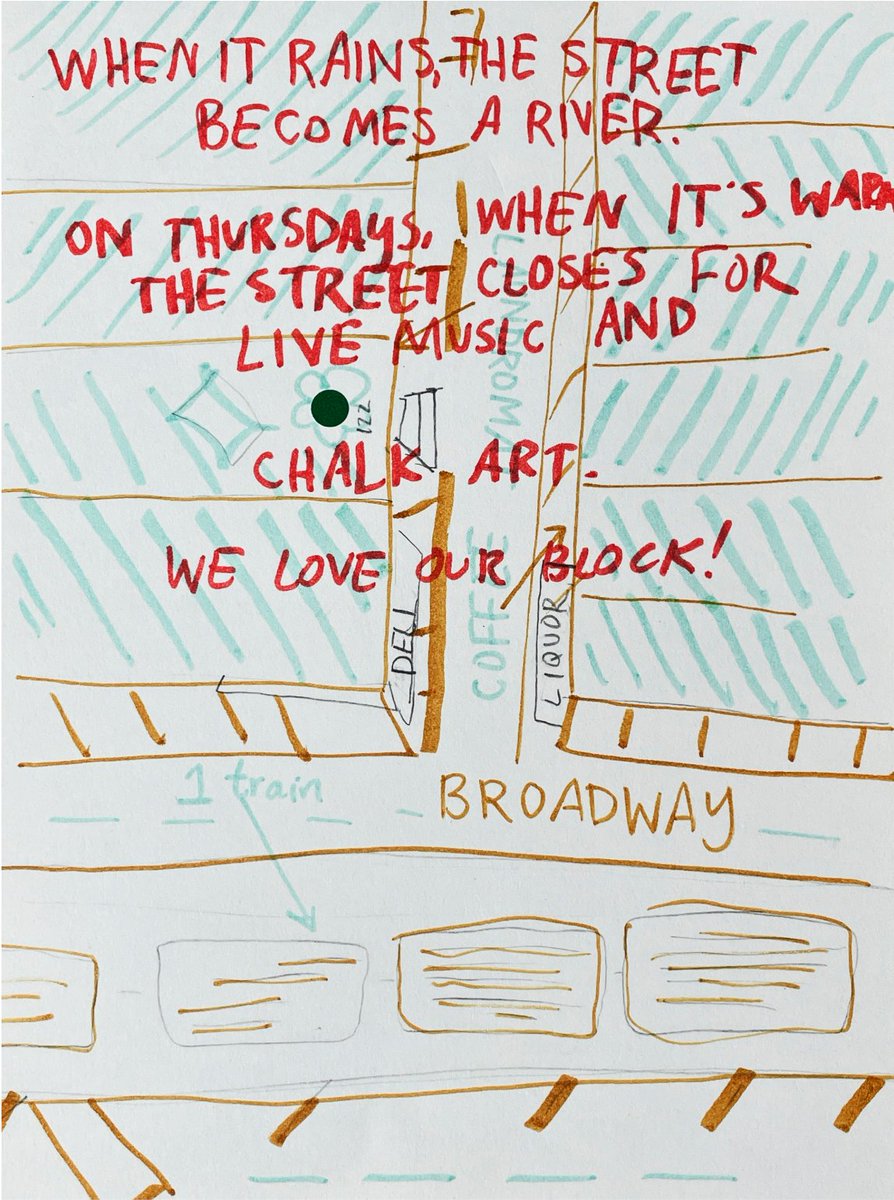 WHEN IT RAINS, THE STREET
BECOMES A RIVER.
ON THURSDAYS, WHEN IT'S WARM
THE STREET CLOSES FOR
LIVE MUSIC AND
LAUNDROMAT
122
CHALK ART.
WE LOVE OUR BLOCK!
COFFEE
DELI
LIQUOR
1 train
BROADWAY